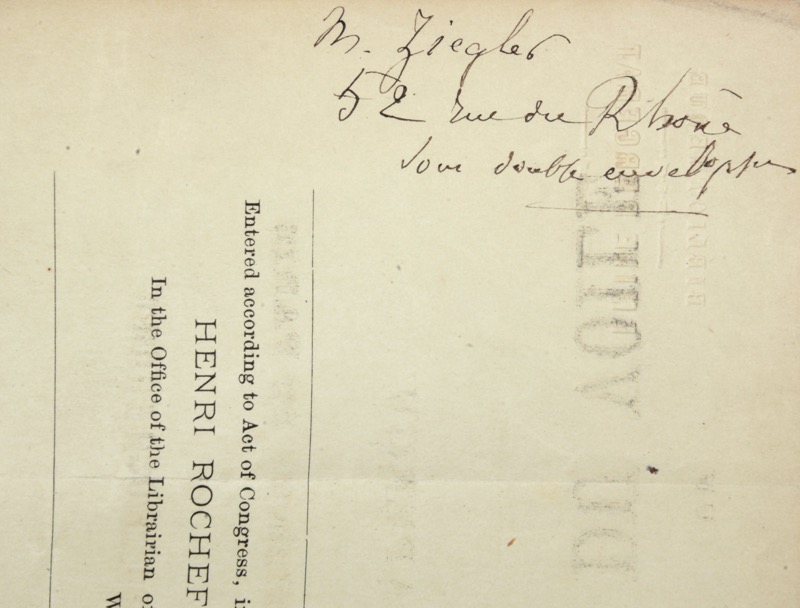 M. Ziegler
52 rue du Rhône
sous double enveloppe
Entered according to Act of Congress, i
HENRI ROCHEF
In the Office of the Librairian o
W